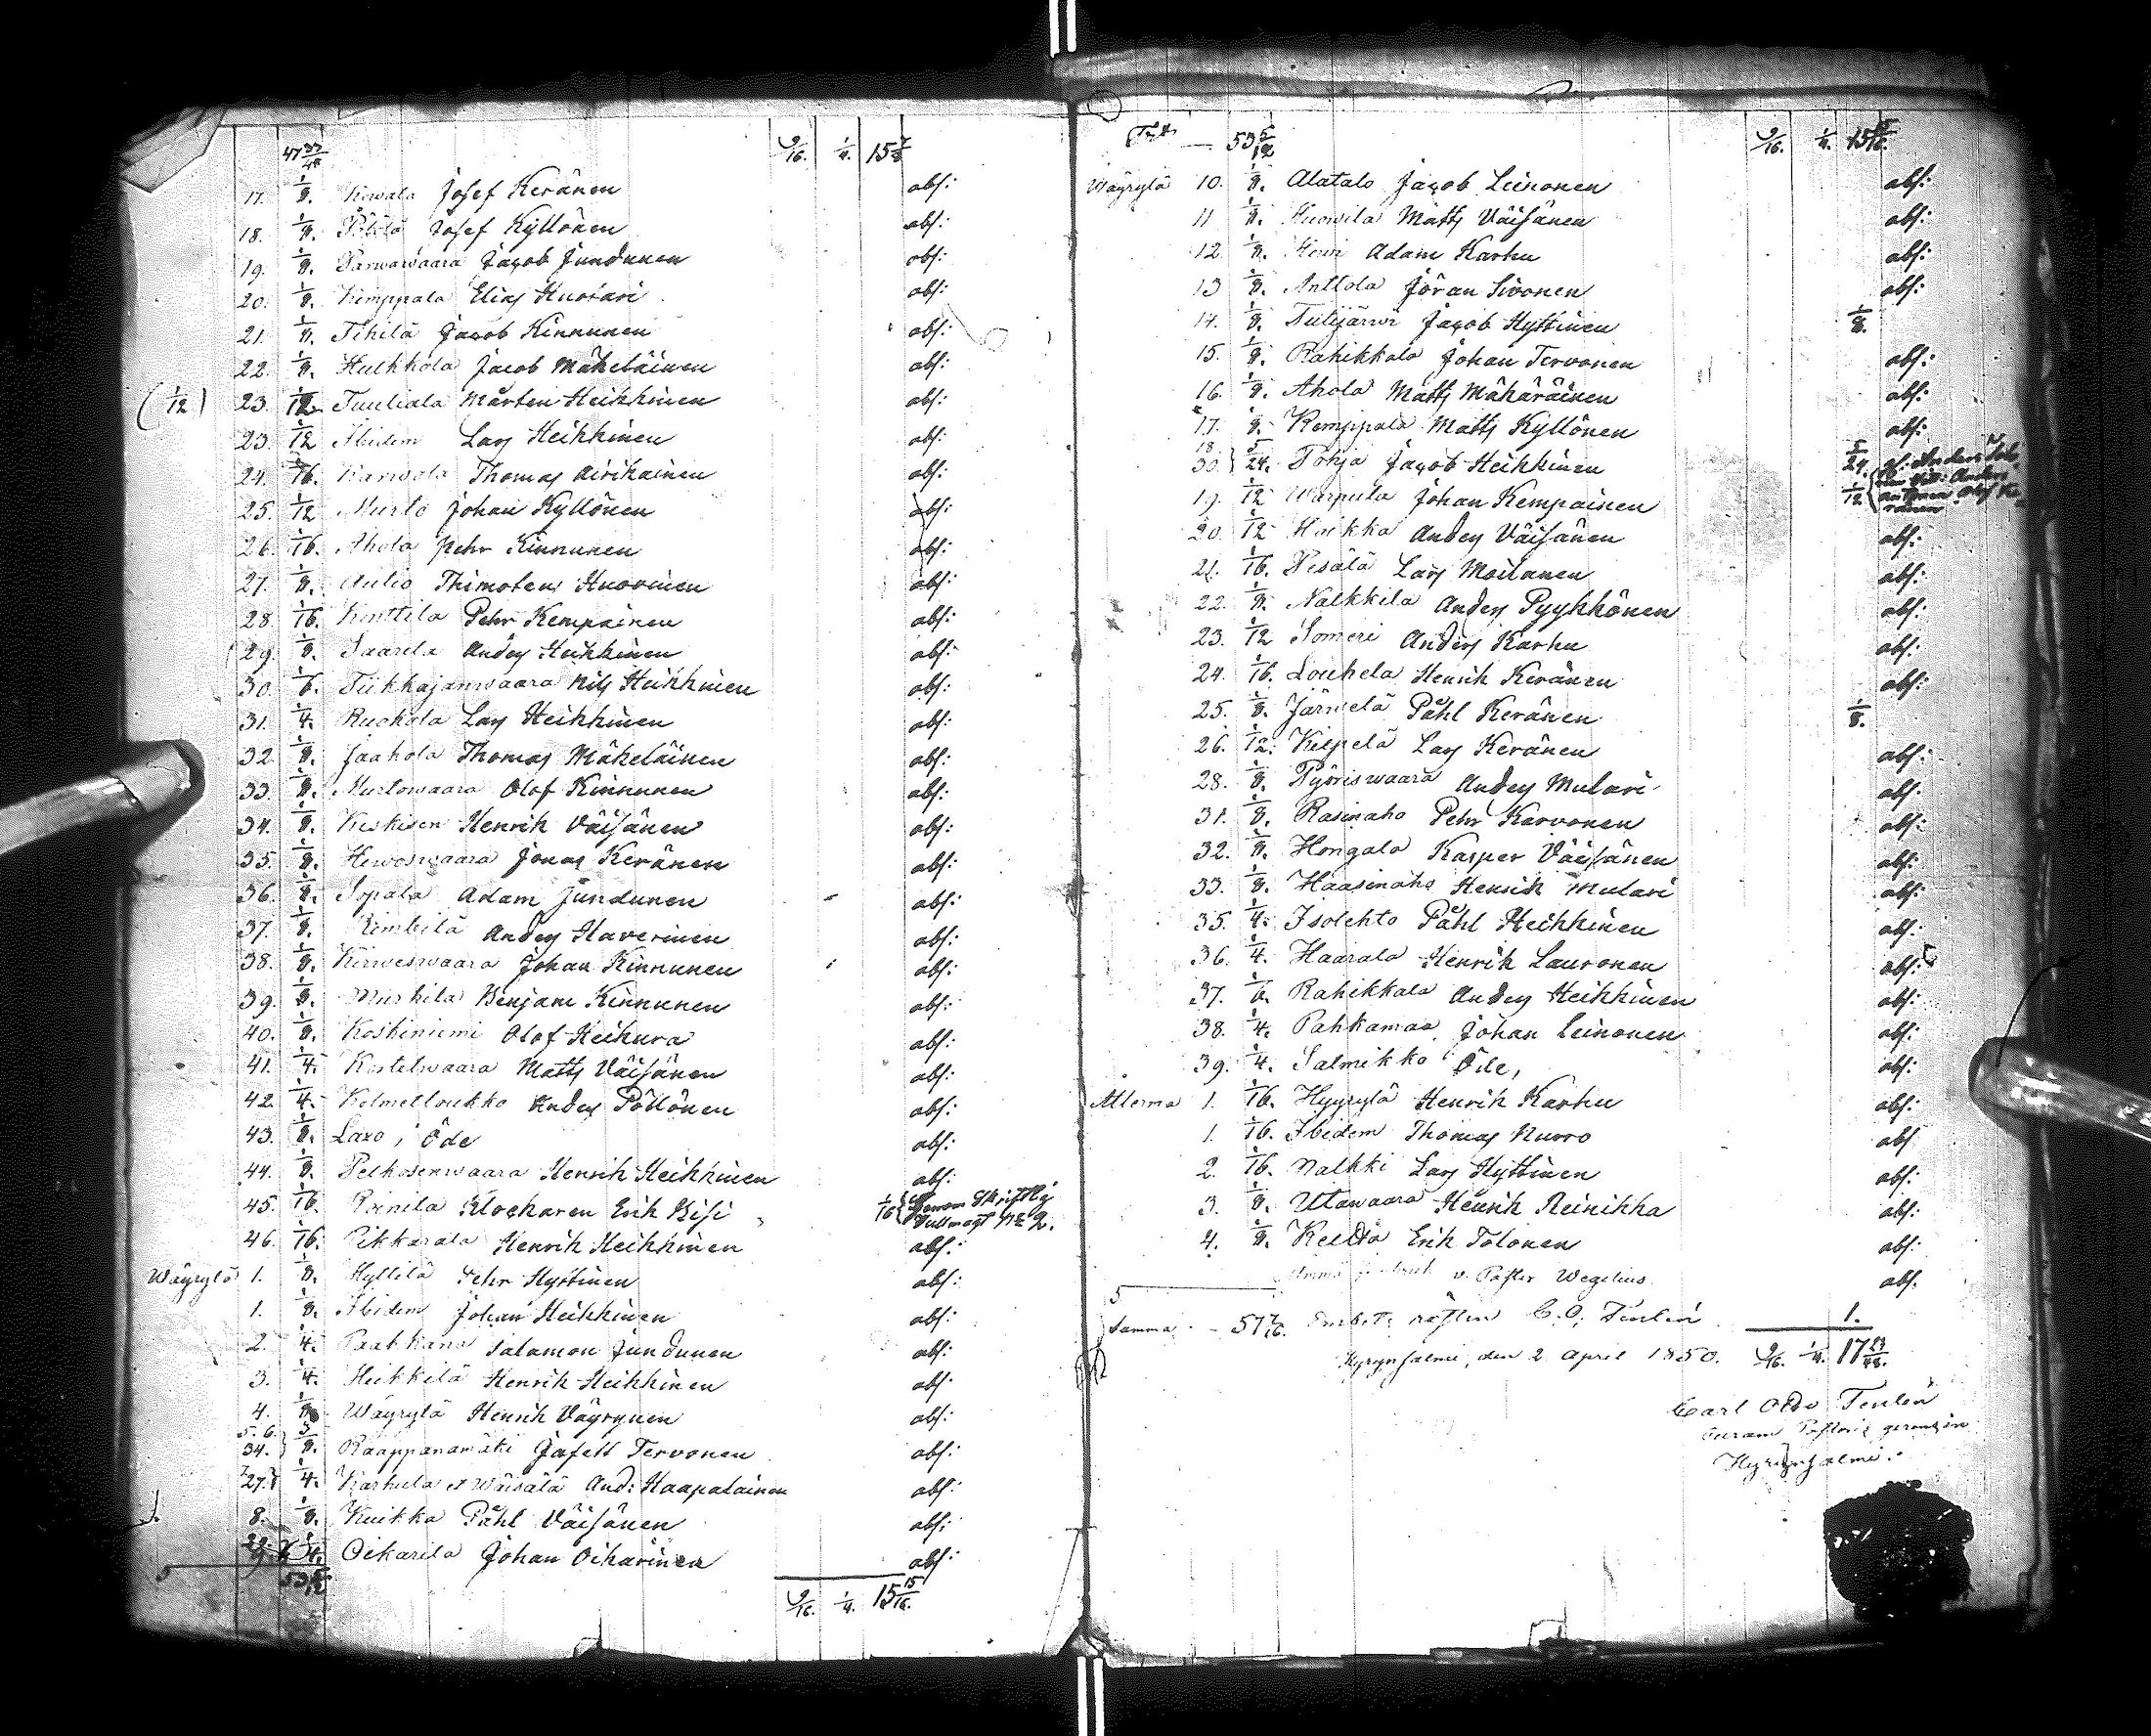 47 37/48 9/16. 1/4. 15 7/8
17. 1/8. Kowala Josef Keränen abs:
18. 1/8. Pölölä Josef Kyllönen abs:
19. 1/8. Parwawaara Jacob Jundunen abs:
20. 1/8. Kemppala Elias Huotari abs:
21. 1/8. Tihilä Jacob Kinnunen abs:
22. 1/8. Hulkkola Jacob Mäkeläinen abs:
(1/12) 23. 1/12 Tuuliala Mårten Heikkinen abs:
23. 1/12 Ibidem Lars Heikkinen abs:
24. 1/16. Karwola Thomas Airikainen abs:
25. 1/12 Murto Johan Kyllönen abs:
26. 1/16. Ahola Pehr Kinnunen abs:
27. 1/8. Aulio Thimoteus Huovinen abs:
28. 1/16. Konttila Pehr Kempainen abs:
29. 1/8. Saarela Anders Heikkinen abs:
30. 1/6. Tiikkajanwaara Nils Heikkinen abs:
31. 1/4. Ruokola Lars Heikkinen abs:
32. 1/8. Jaahola Thomas Mäkeläinen abs:
33. 1/8. Murtowaara Olof Kinnunen abs:
34. 1/8. Keskisen Henrik Väisänen abs:
35. 1/8. Hewoswaara Jonas Keränen abs:
36. 1/8. Sopala Adam Jundunen abs:
37. 1/8. Kimbilä Anders Haverinen abs:
38. 1/8. Kirweswaara Johan Kinnunen abs:
39. 1/8. Murhila Benjam Kinnunen abs:
40. 1/8. Koskiniemi Olof Heikura abs:
41. 1/4. Kortelwaara Matts Väisänen abs:
42. 1/4. Kelmelloukko Anders Pöllönen abs:
43. 1/8. Laxo, Öde abs:
44. 1/8. Pelkosenwaara Henrik Heikkinen abs:
45. 1/16. Rainila Klockaren Erik Kisi 1/16 { Genom Skriftlig
Fullmagt No 2.
46. 1/16. Pikkarala Henrik Heikkinen abs:
Wäyrylä 1. 1/8. Hyttilä Pehr Hyttinen abs:
1. 1/8. Ibidem Johan Heikkinen abs:
2. 1/4. Paakkana Salamon Jundunen abs:
3. 1/4. Heikkilä Henrik Heikkinen abs:
4. 1/8 Wäyrylä Henrik Väyrynen abs:
5. 6.
34. } 3/8. Raappanamäki Jafett Tervonen abs:
7
27. } 1/4. Karhula et Wäisälä And: Haapalainen abs:
8. 1/8. Kuikka Påhl Väisänen abs:
29.
9. 1/4. Oikarila Johan Oikarinen abs:
53 5/12 9/16. 1/4. 15 15/16.
53 5/12 9/16. 1/4. 15 15/16.
Wäyrylä 10. 1/8. Alatalo Jacob Leinonen abs:
11 1/8. Huowila Matts Väisänen abs:
12 1/8. Howi Adam Karhu abs:
13 1/8. Anttola Jöran Sivonen abs:
14. 1/8. Tulijärwi Jacob Hyttinen 1/8.
15. 1/8. Rahikkala Johan Tervonen abs:
16. 1/8. Ahola Matts Mähäräinen abs:
17. 1/8. Kemppala Matts Kyllönen abs:
18.
30. } 5/24. Pohja Jacob Heikkinen 5/24.
19. 1/12 Warpula Johan Kempainen 1/12
20. 1/12 Hoikka Anders Väisänen abs:
21. 1/16. Pesälä Lars Moilanen abs:
22. 1/8. Nalkkila Anders Pyykkönen abs:
23. 1/12 Someri Anders Karhu abs:
24. 1/16. Louhela Henrik Keränen abs:
25. 1/8. Järwelä Påhl Keränen 1/8.
26. 1/12. Kilpelä Lars Keränen abs:
28. 1/8. Pyöriswaara Anders Mulari abs.
31. 1/8. Rasinaho Pehr Karvonen abs:
32. 1/8. Hongala Kasper Väisänen abs:
33. 1/8. Haasinaho Henrik Mulari abs:
35. 1/4. Isolehto Påhl Heikkinen abs:
36. 1/4. Haarala Henrik Lauronen abs:
37. 1/6. Rahikkala Anders Heikkinen abs:
38. 1/4. Pahkamaa Johan Leinonen abs:
39. 1/4. Salmikko Öde, abs:
Moisiowaara 1. 1/16. Hyyrylä Henrik Karhu abs:
1. 1/16. Ibidem Thomas Nurro abs
2. 1/16. Nalkki Lars Hyttinen abs:
3. 1/8. Utawaara Henrik Reinikka abs:
4. 1/8. Keldo Erik Tolonen abs:
v. Pastor Wegelius. abs.
Summa 57 7/16. Embets rösten C. O. Tenlén 1.
Hyrynsalmi, den 2 April 1850. 9/16. 1/4. 17 23/48.
Carl Otto Tenlén
Curam Pastoris gerens in
Hyrynsalmi.